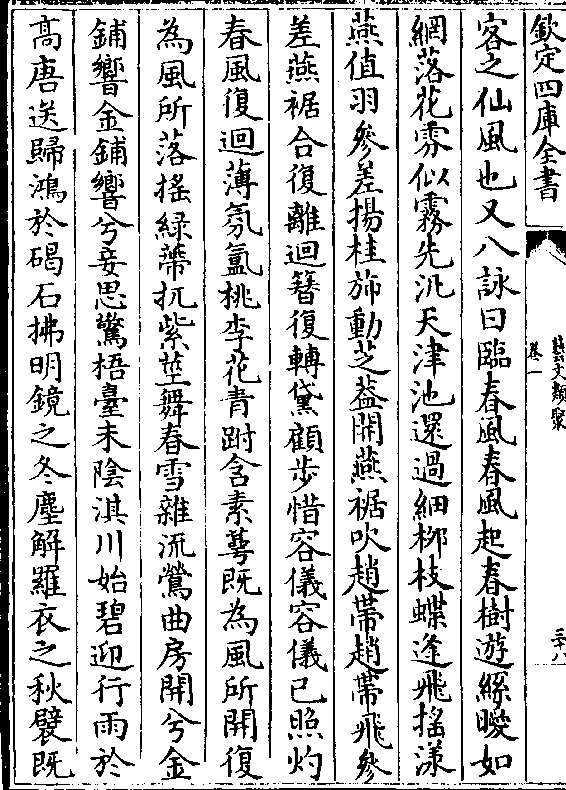 欽定四庫全書
藝文類聚
卷一
三十八
客之仙風也又八詠曰臨春風春風起春樹遊絲曖如
網落花雰似霧先汎天津池還過細柳枝蝶逢飛搖漾
燕值羽參差揚桂斾動芝葢開燕裾吹趙帶趙帶飛參
差燕裾合復離迴簪復轉黛顧步惜容儀容儀已照灼
春風復迴薄氛氳桃李花青跗含素蕚既為風所開復
為風所落搖綠蔕抗紫莖舞春雪雜流鶯曲房開兮金
鋪響金鋪響兮妾思驚梧臺未陰淇川始碧迎行雨於
高唐送歸鴻於碣石拂明鏡之冬塵解羅衣之秋襞既